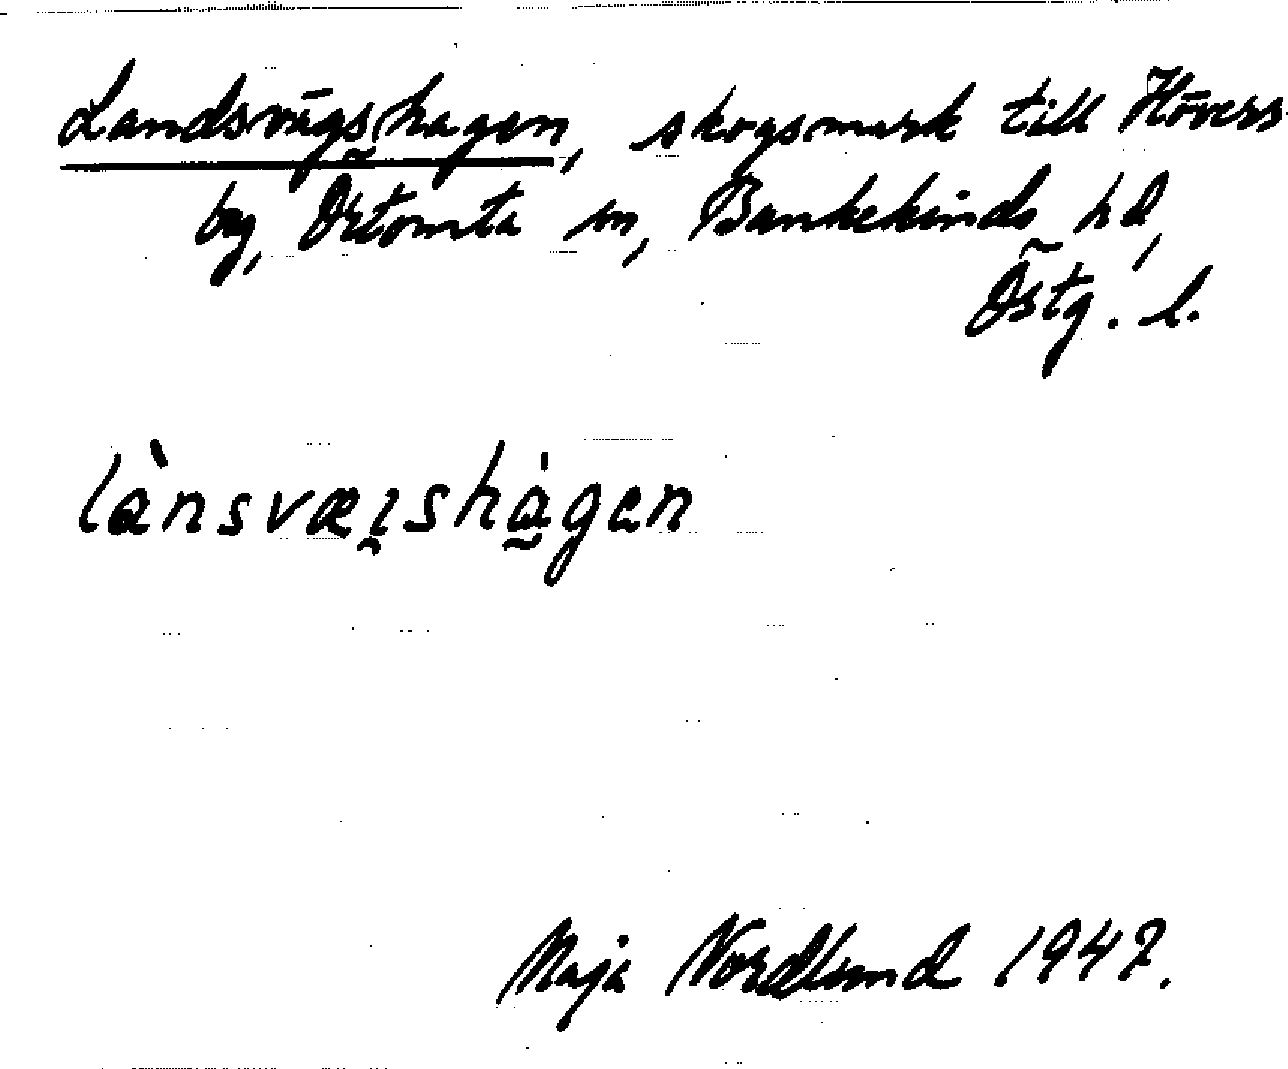 Landsvägshagen, skogsmark till Hövers
by, Örtomta sn, Bankekinds hd,
Östg. l.
là̀nsvæɪshágen
Maja Nordlund 1947.